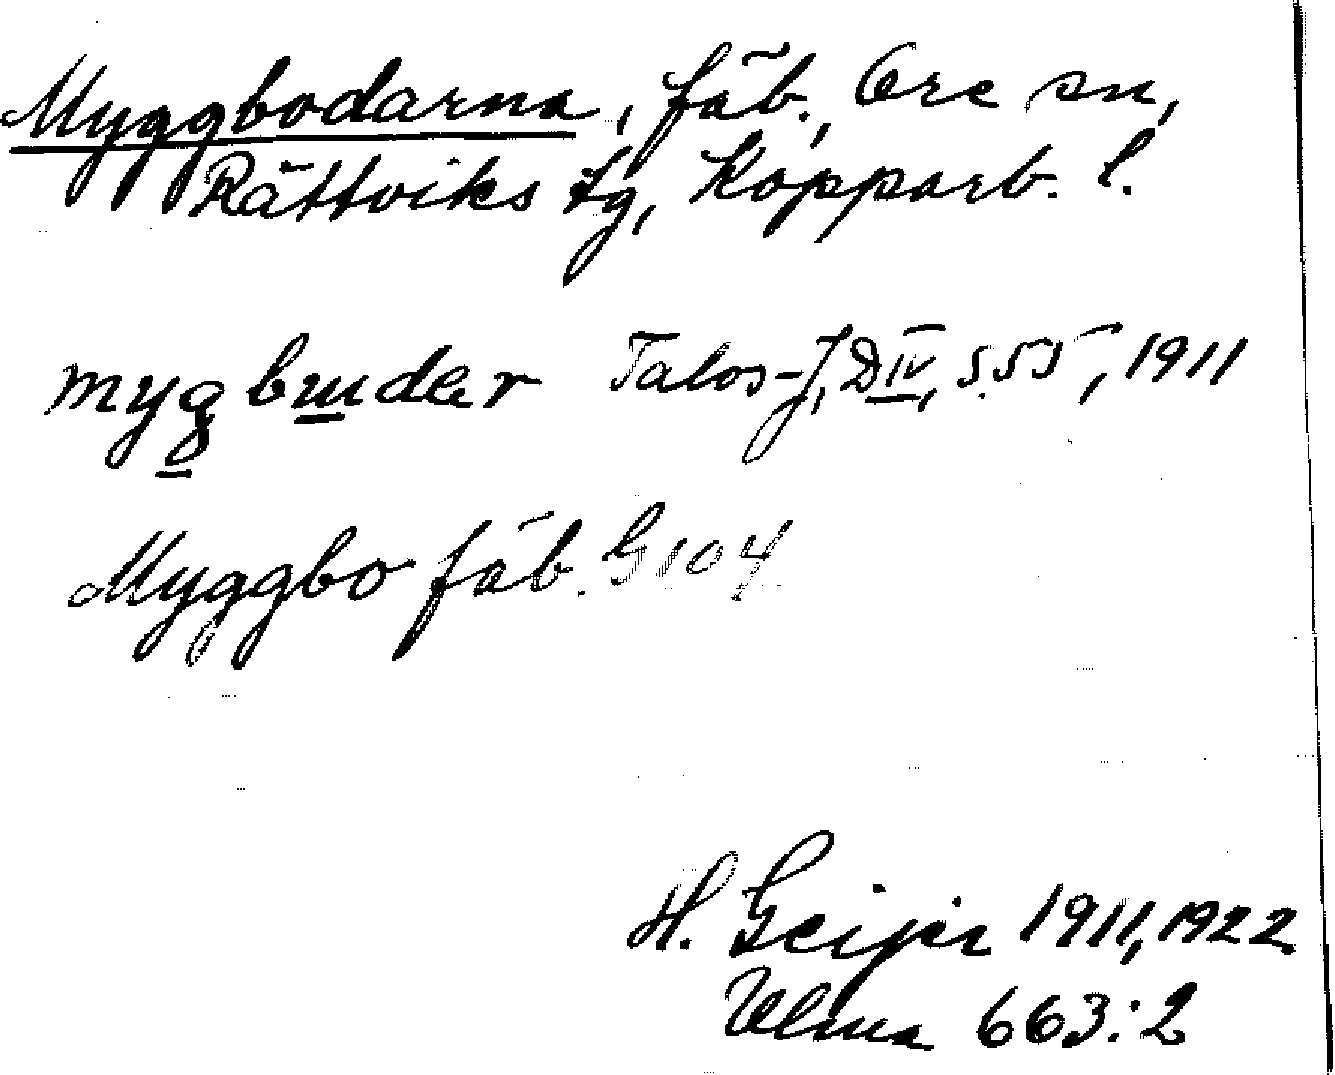 Myggbodarna, fäb., Ore sn,
Rättviks tg, Kopparb. l.
myg bɯdar Talos-J, D IV, s. 55, 1911
Myggbo fäb. G 104
H. Geijer 1911, 1922
Ulma 663:2